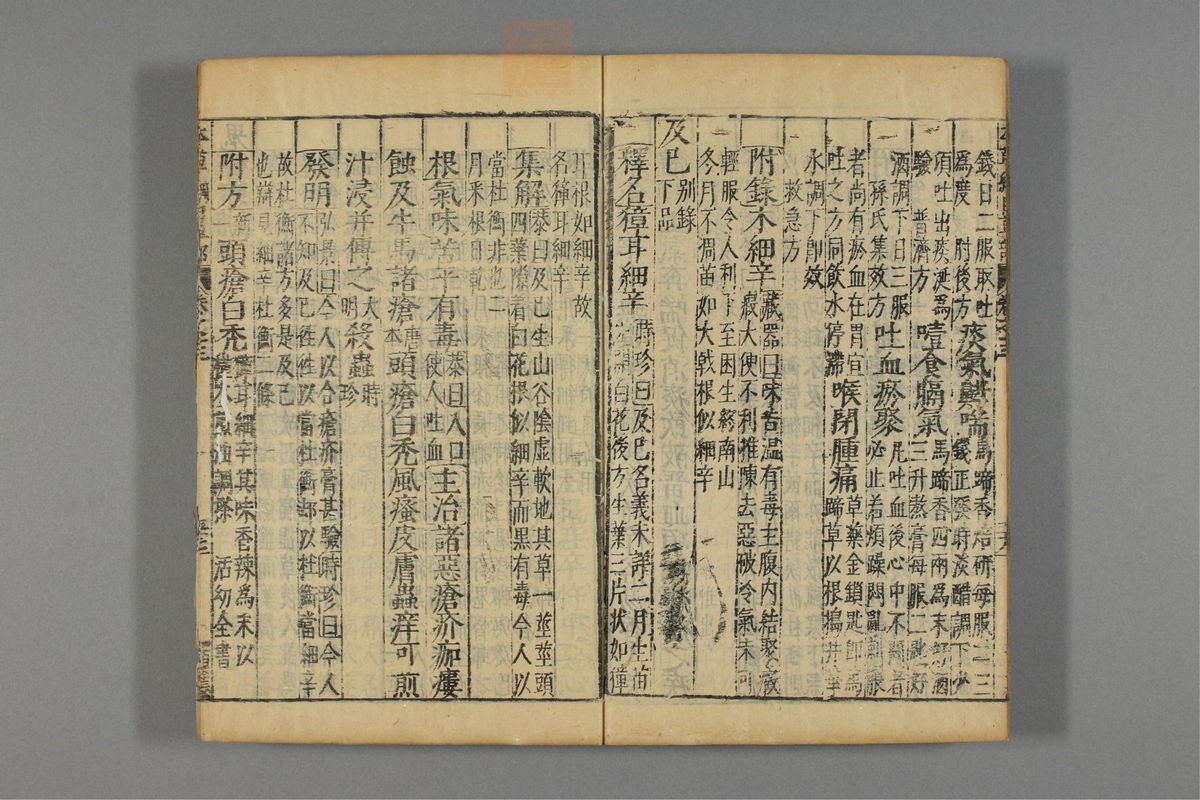 錢日二服取吐
為度 肘後方
痰氣㽲喘 馬蹄香焙研每服二三
錢正發時淡醋調下少
頃吐出痰涎為
驗 普濟方
噎食膈氣 馬蹄香四兩為末好酒
三升熬膏每服二匙好
酒調下日三服
孫氏集效方
吐血瘀聚 凡吐血後心中不悶者
必止若煩躁悶亂刺脹
者尚有瘀血在胃宜
吐之方同飲水停滯
喉閉腫痛 草藥金鎖匙即馬
蹄草以根搗井華
水調下即效
救急方
附錄木細辛 藏器曰味苦溫有毒主腹内結聚癥
瘕大便不利推陳去惡破冷氣未可
輕服令人利下至困生終南山
冬月不凋苗如大戟根似細辛
及已 别錄
下品
釋名獐耳細辛 時珍曰及已名義未詳二月生苗
先開白花後方生葉三片狀如獐
耳根如細辛故
名獐耳細辛
集解 恭曰及已生山谷陰虛軟地其草一莖莖頭
四葉隙著白花根似細辛而黑有毒今人以
當杜衡非也二
月采根日乾
根氣味苦平有毒 恭曰入口
使人吐血
主治諸惡瘡疥痂瘻
蝕及牛馬諸瘡 唐
本
頭瘡白禿風瘙皮膚蟲痒可煎
汁浸并傅之 大
明
殺蟲 時
珍
發明 弘景曰今人以合瘡疥膏甚驗時珍曰今人
不知及已往往以當杜衡却以杜衡當細辛
故杜衡諸方多是及已
也辯見細辛杜衡二條
附方 新
一
頭瘡白禿 獐耳細辛其味香辣為末以
活幼全書